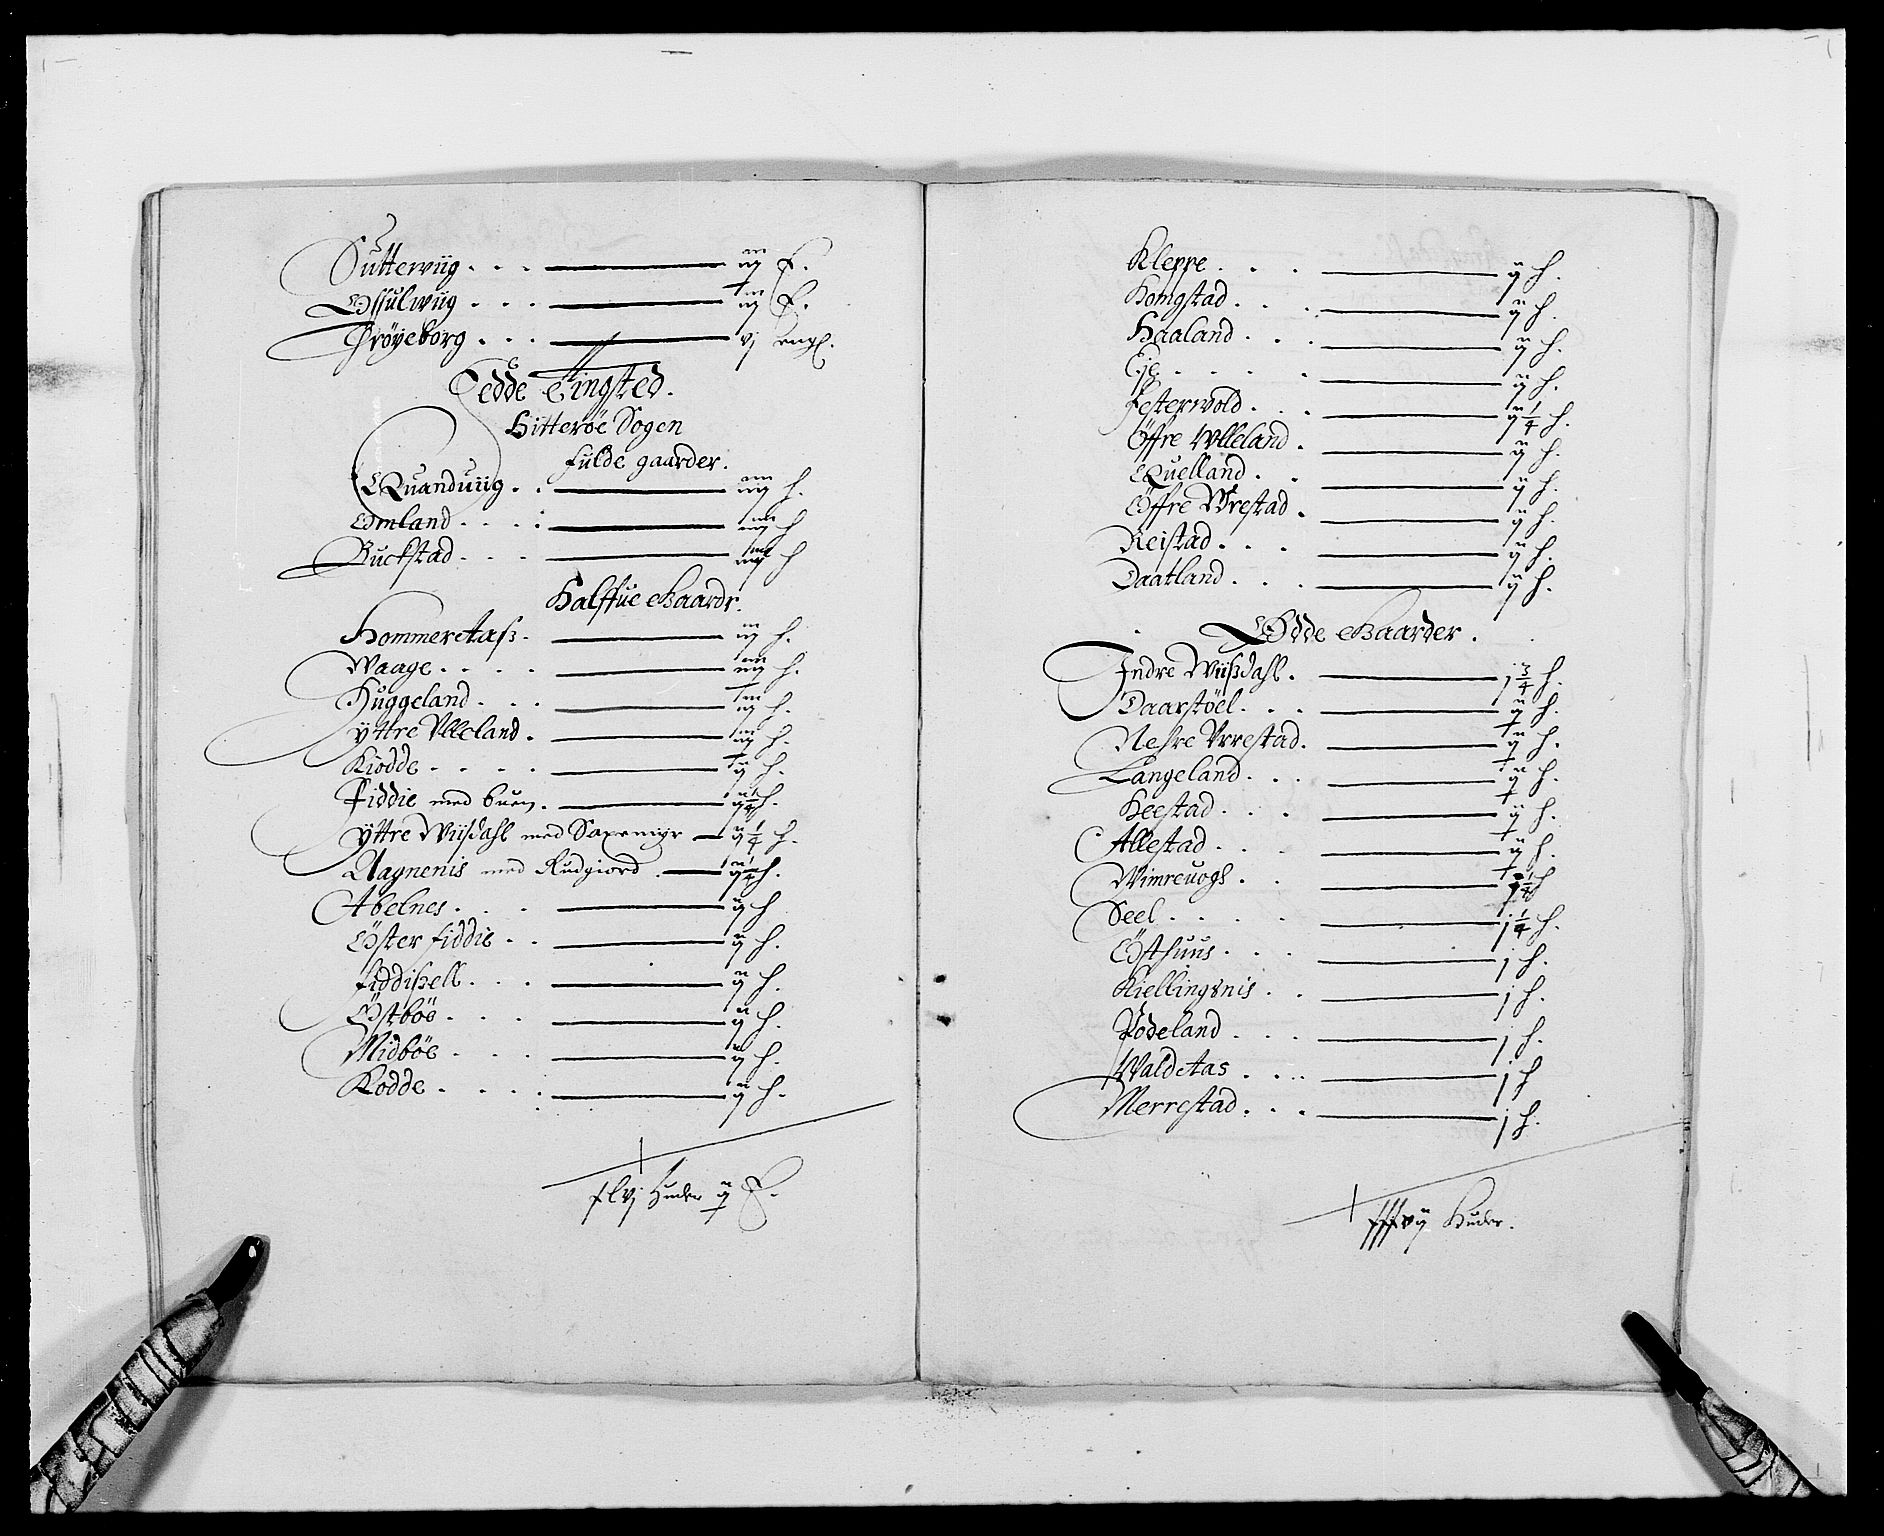 Sutterwiig . . . iij E.
Ossulwiig . . . iij E.
Thrøyeborg . . . vj engl.
Fedde Tingsted.
Hitterøe Sogen
fulde gaarder.
Quanduiig . . iiij h.
Omland . . . . iiij h
Buckstad . . . iiij h
Halffue Gaardr.
Hommer Aas . iij h.
Waage . . . . iiij h.
Huggeland . . . iij h.
yttre Vlleland . iij h.
Kiodde . . . . ij h.
Fiddie med buen . ij 1/4 h.
yttre Wiisdahl med Saxemyr ij 1/4 h.
Aagnenis med Rudgiord . ij 1/4 h.
Abelnes . . . ij h
Öster fiddie . . ij h.
fiddisell . . . ij h.
Östböe . . . ij h.
Midböe . . . ij h.
Rodde . . . . ij h.
xlvj Huder ij E.
Kleppe . . . ij h.
Homgstad . . . ij h.
Haaland . . . ij h.
Eje . . . . ij h.
festerwold . . . ij 1/4 h.
Öffre Vlleland . ij h.
Quelland . . ij h.
Öffre Vrestad . ij h.
Reistad . . . ij h.
Daatland . . . ij h.
Ödde Gaarder .
Indre Wiisdahl . j 3/4 h.
Daarstöel . . . ij h.
Nesre Vrrestad . ij h.
Langeland . . . ij h.
Heestad . . . ij h.
Allestad . . . ij h.
Wimreuogh . . 1/4 h
Seel . . . . j 1/4 h.
Östhuus . . . j h.
Kiellingsnis . . j h.
Podeland . . . j h.
Wald Aas . . . j h
Merrestad . . . j h.
xxxvij Huder.